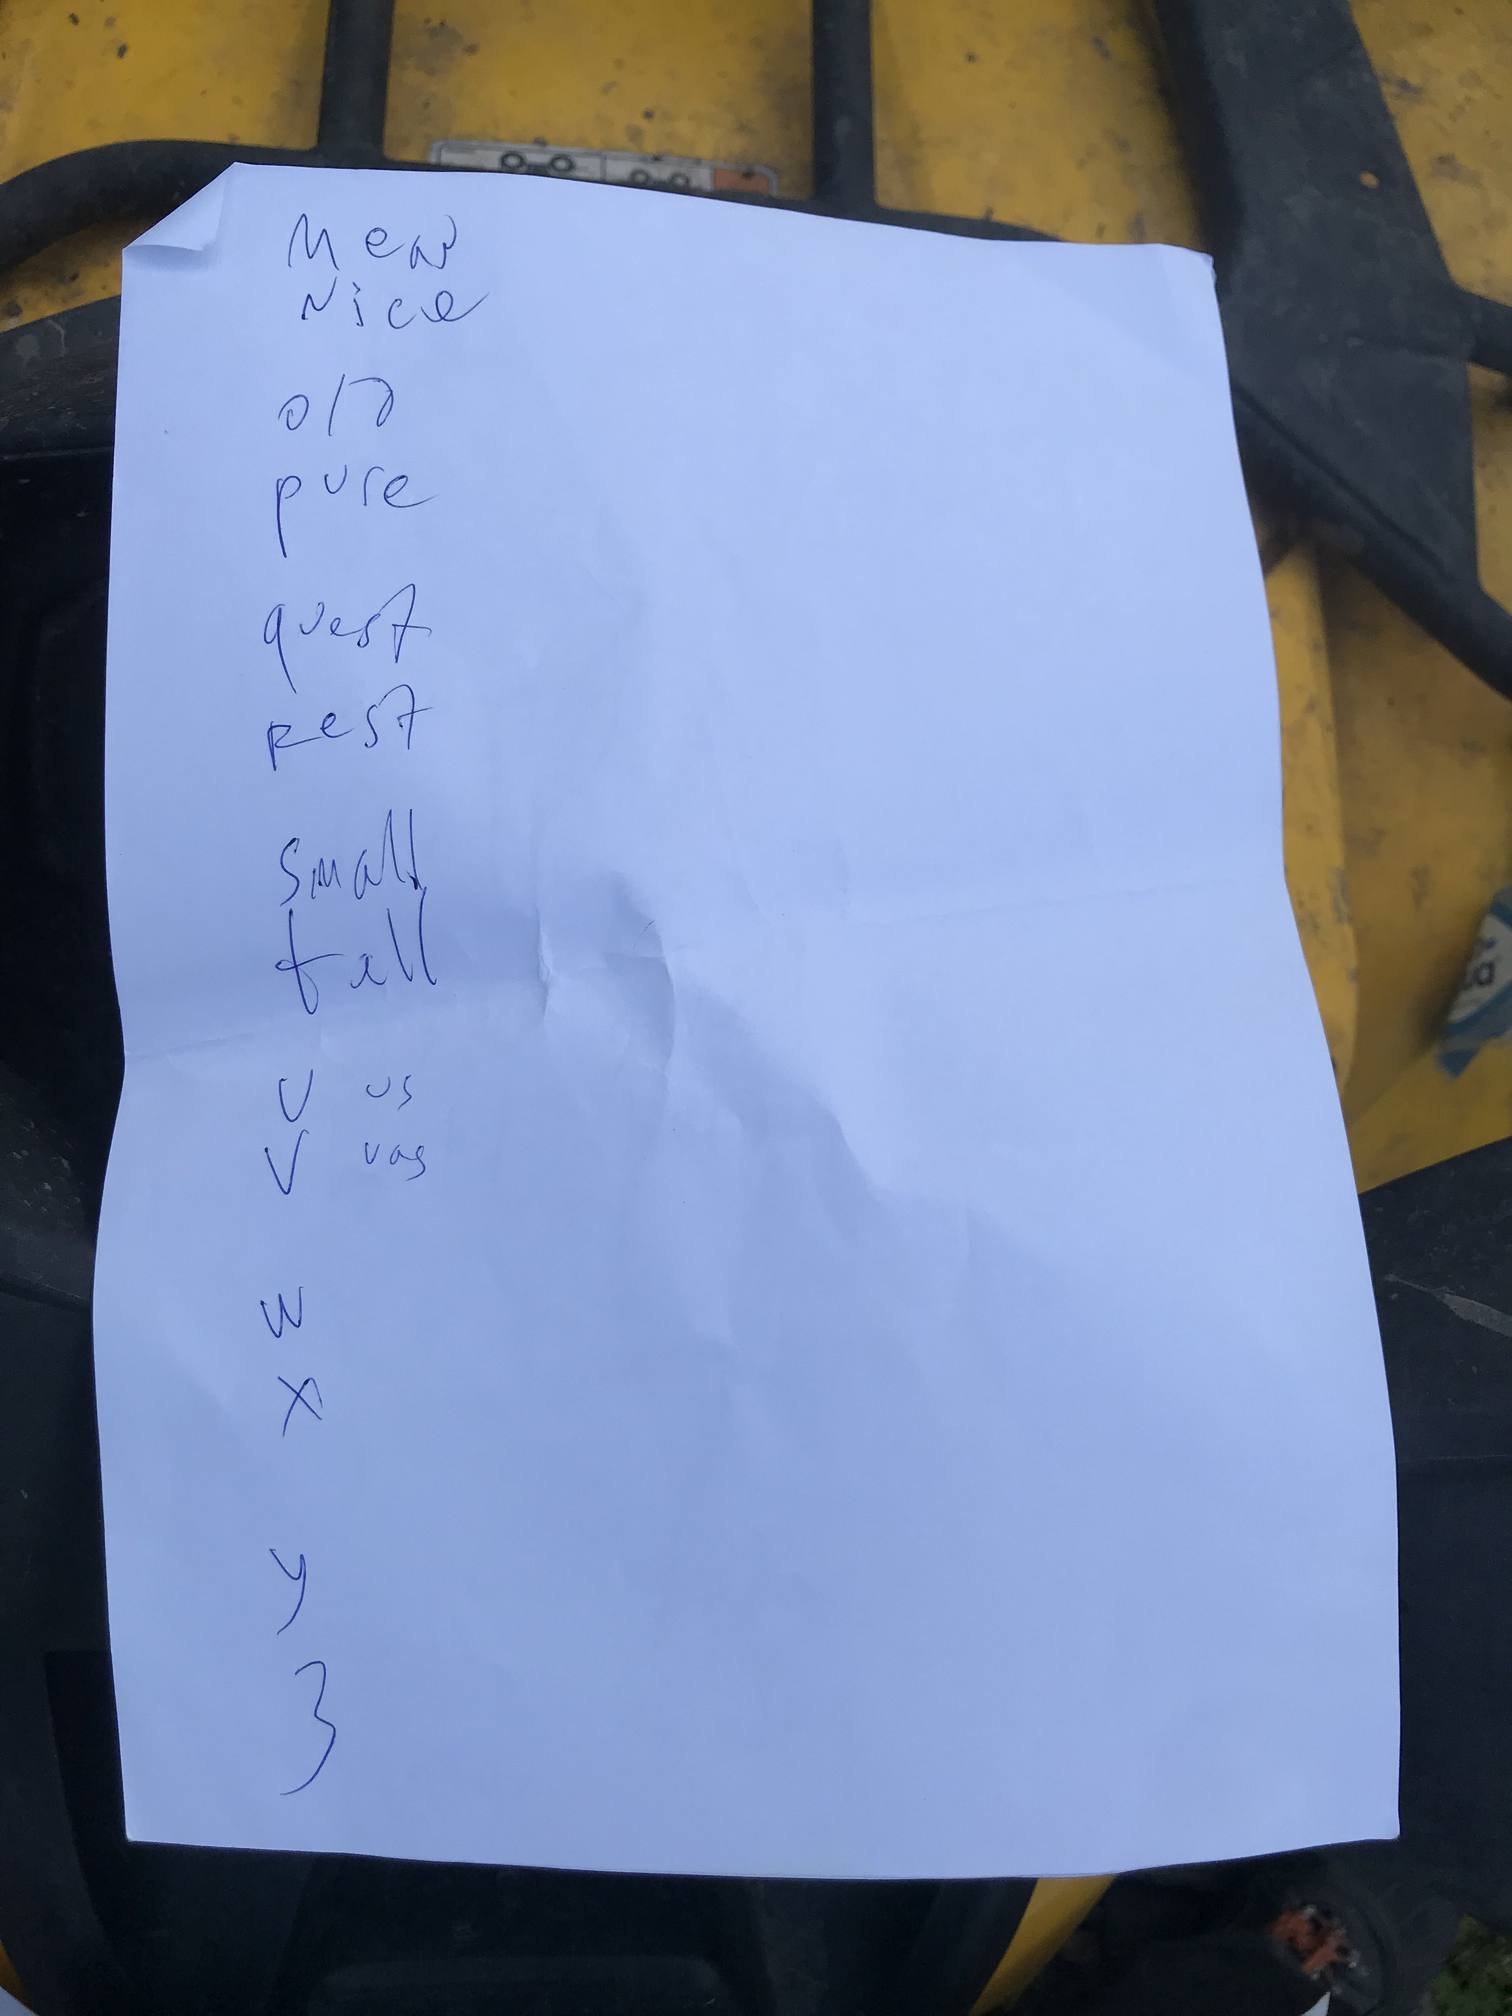 Mean
Nice
old
pure
quest
rest
small
tall
U us
V vas
W
X
y
3